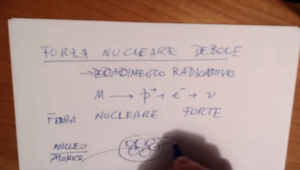 FORZA NUCLEARE DEBOLE
→ DECADIMENTO RADIOATTIVO
M → p⁺ + e⁻ + ν
FORZA NUCLEARE FORTE
NUCLEO
ATOMICO